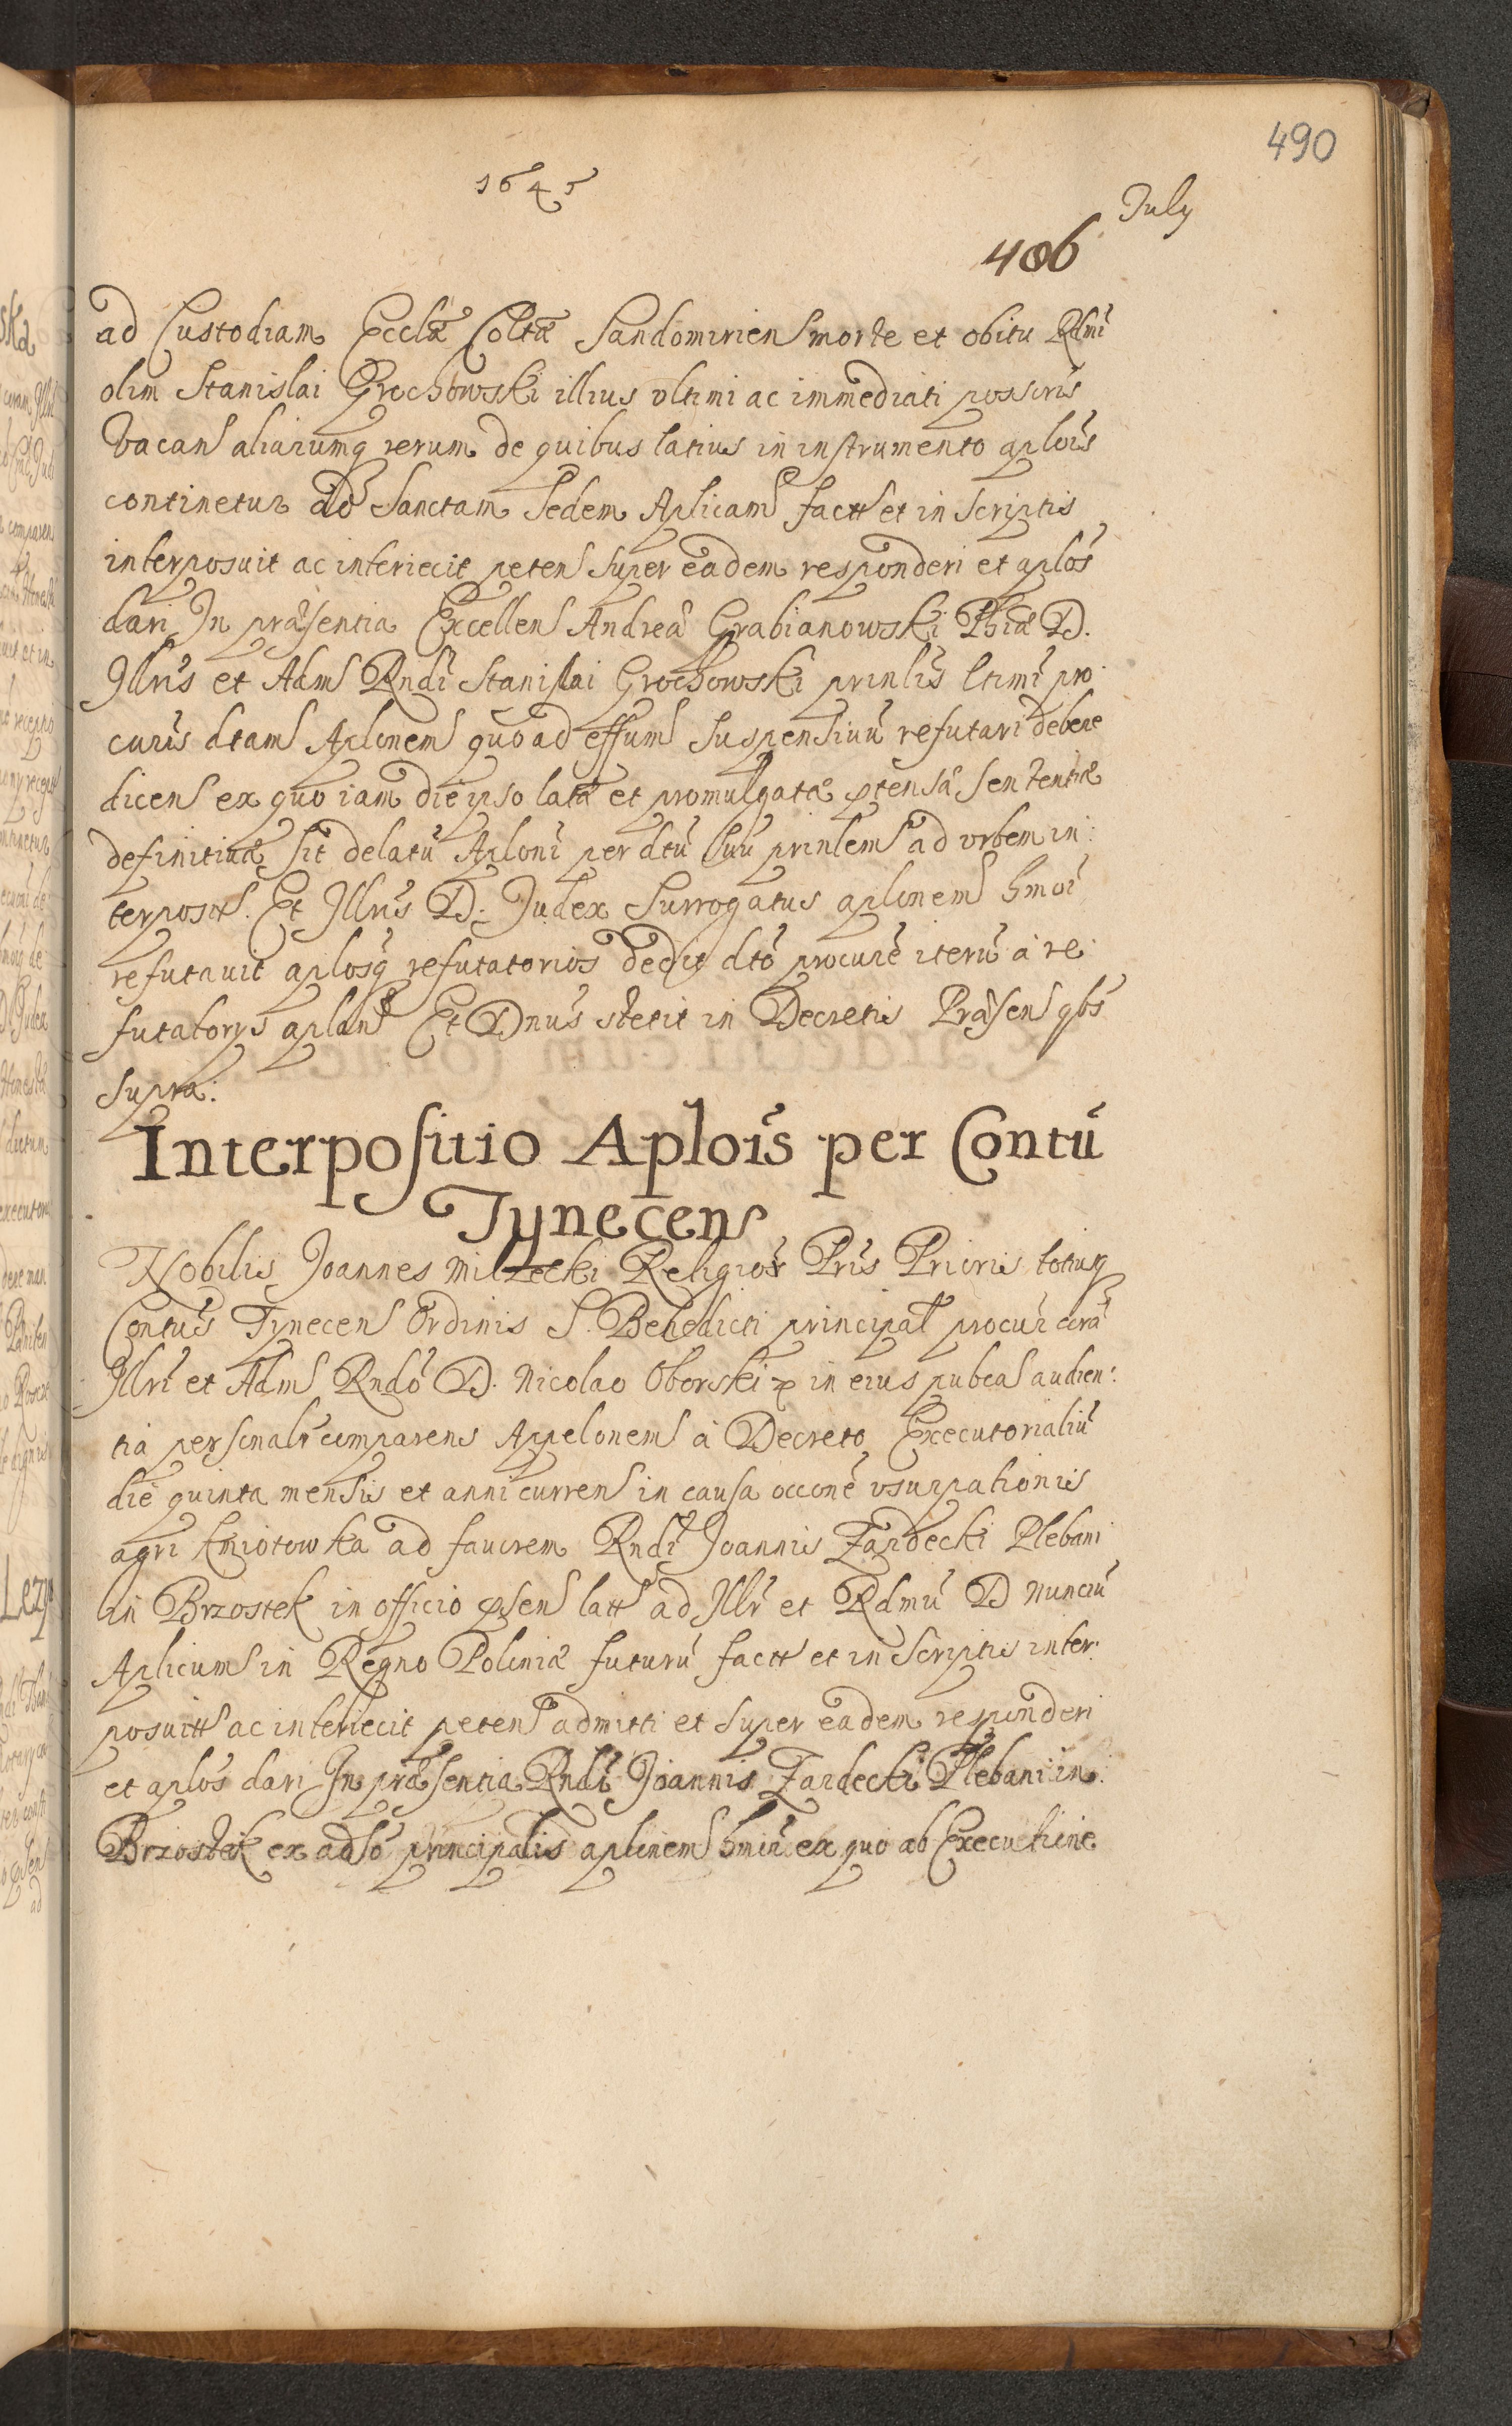 490
1645
July
406
ad Custodiam Ecclæ Coltæ Sandomirien morte et obitu Rdmi
olim Stanislai Grochowski illius vltimi ac immediati possoris
vacan aliarumq rerum de quibus latius in instrumento aplois
continetur ad Sanctam Sedem Aplicam factt et in Scriptis
interposuit ac interiecit peten super eadem responderi et aplos
dari In præsentia Excellen Andreæ Grabianowski Phiæ D.
Illris et Adm Rndi Stanislai Grochowski prinlis ltimi pro
curis dtam Aplonem quo ad effum Suspensiuu refutari debere
dicens ex quo iam die ipso latæ et promulgatæ ptensæ sententiæ
definitiuæ sit delatu Aploni per dtu suu prinlem ad vrbem in:
terposit. Et Illris D. Judex Surrogatus aplonem hmoi
refutauit aplosq refutatorios dedit dto procure iteru à re
futatorys aplan Et Dnus stetit in Decretis Præsen qbs
supra:
Interpositio Aplois per Contu
Tynecens
Nobilis Joannes Milzecki Religior Pris Prioris totiusq
Contus Tynecen Ordinis S. Benedicti principal procur cora
Illri et Adm Rndo D. Nicolao Oborski in eius pubca audien:
tia personalr comparens Appelonem à Decreto Executorialiu
die quinta mensis et anni curren in causa occone vsurpationis
agri Kmiotowka ad fauorem Rndi Joannis Zardecki Plebani
in Brzostek in officio psen latt ad Illr et Rdmu D Nunciu
Aplicum in Regno Poloniæ futuru factt et in Scriptis inter:
posuitt ac interiecit peten admitti et super eadem responderi
et aplos dari In præsentia Rndi Joannis Zardecki Plebani in
Brzostek ex adso principalis aplonem hmoi ex quo ab Executione